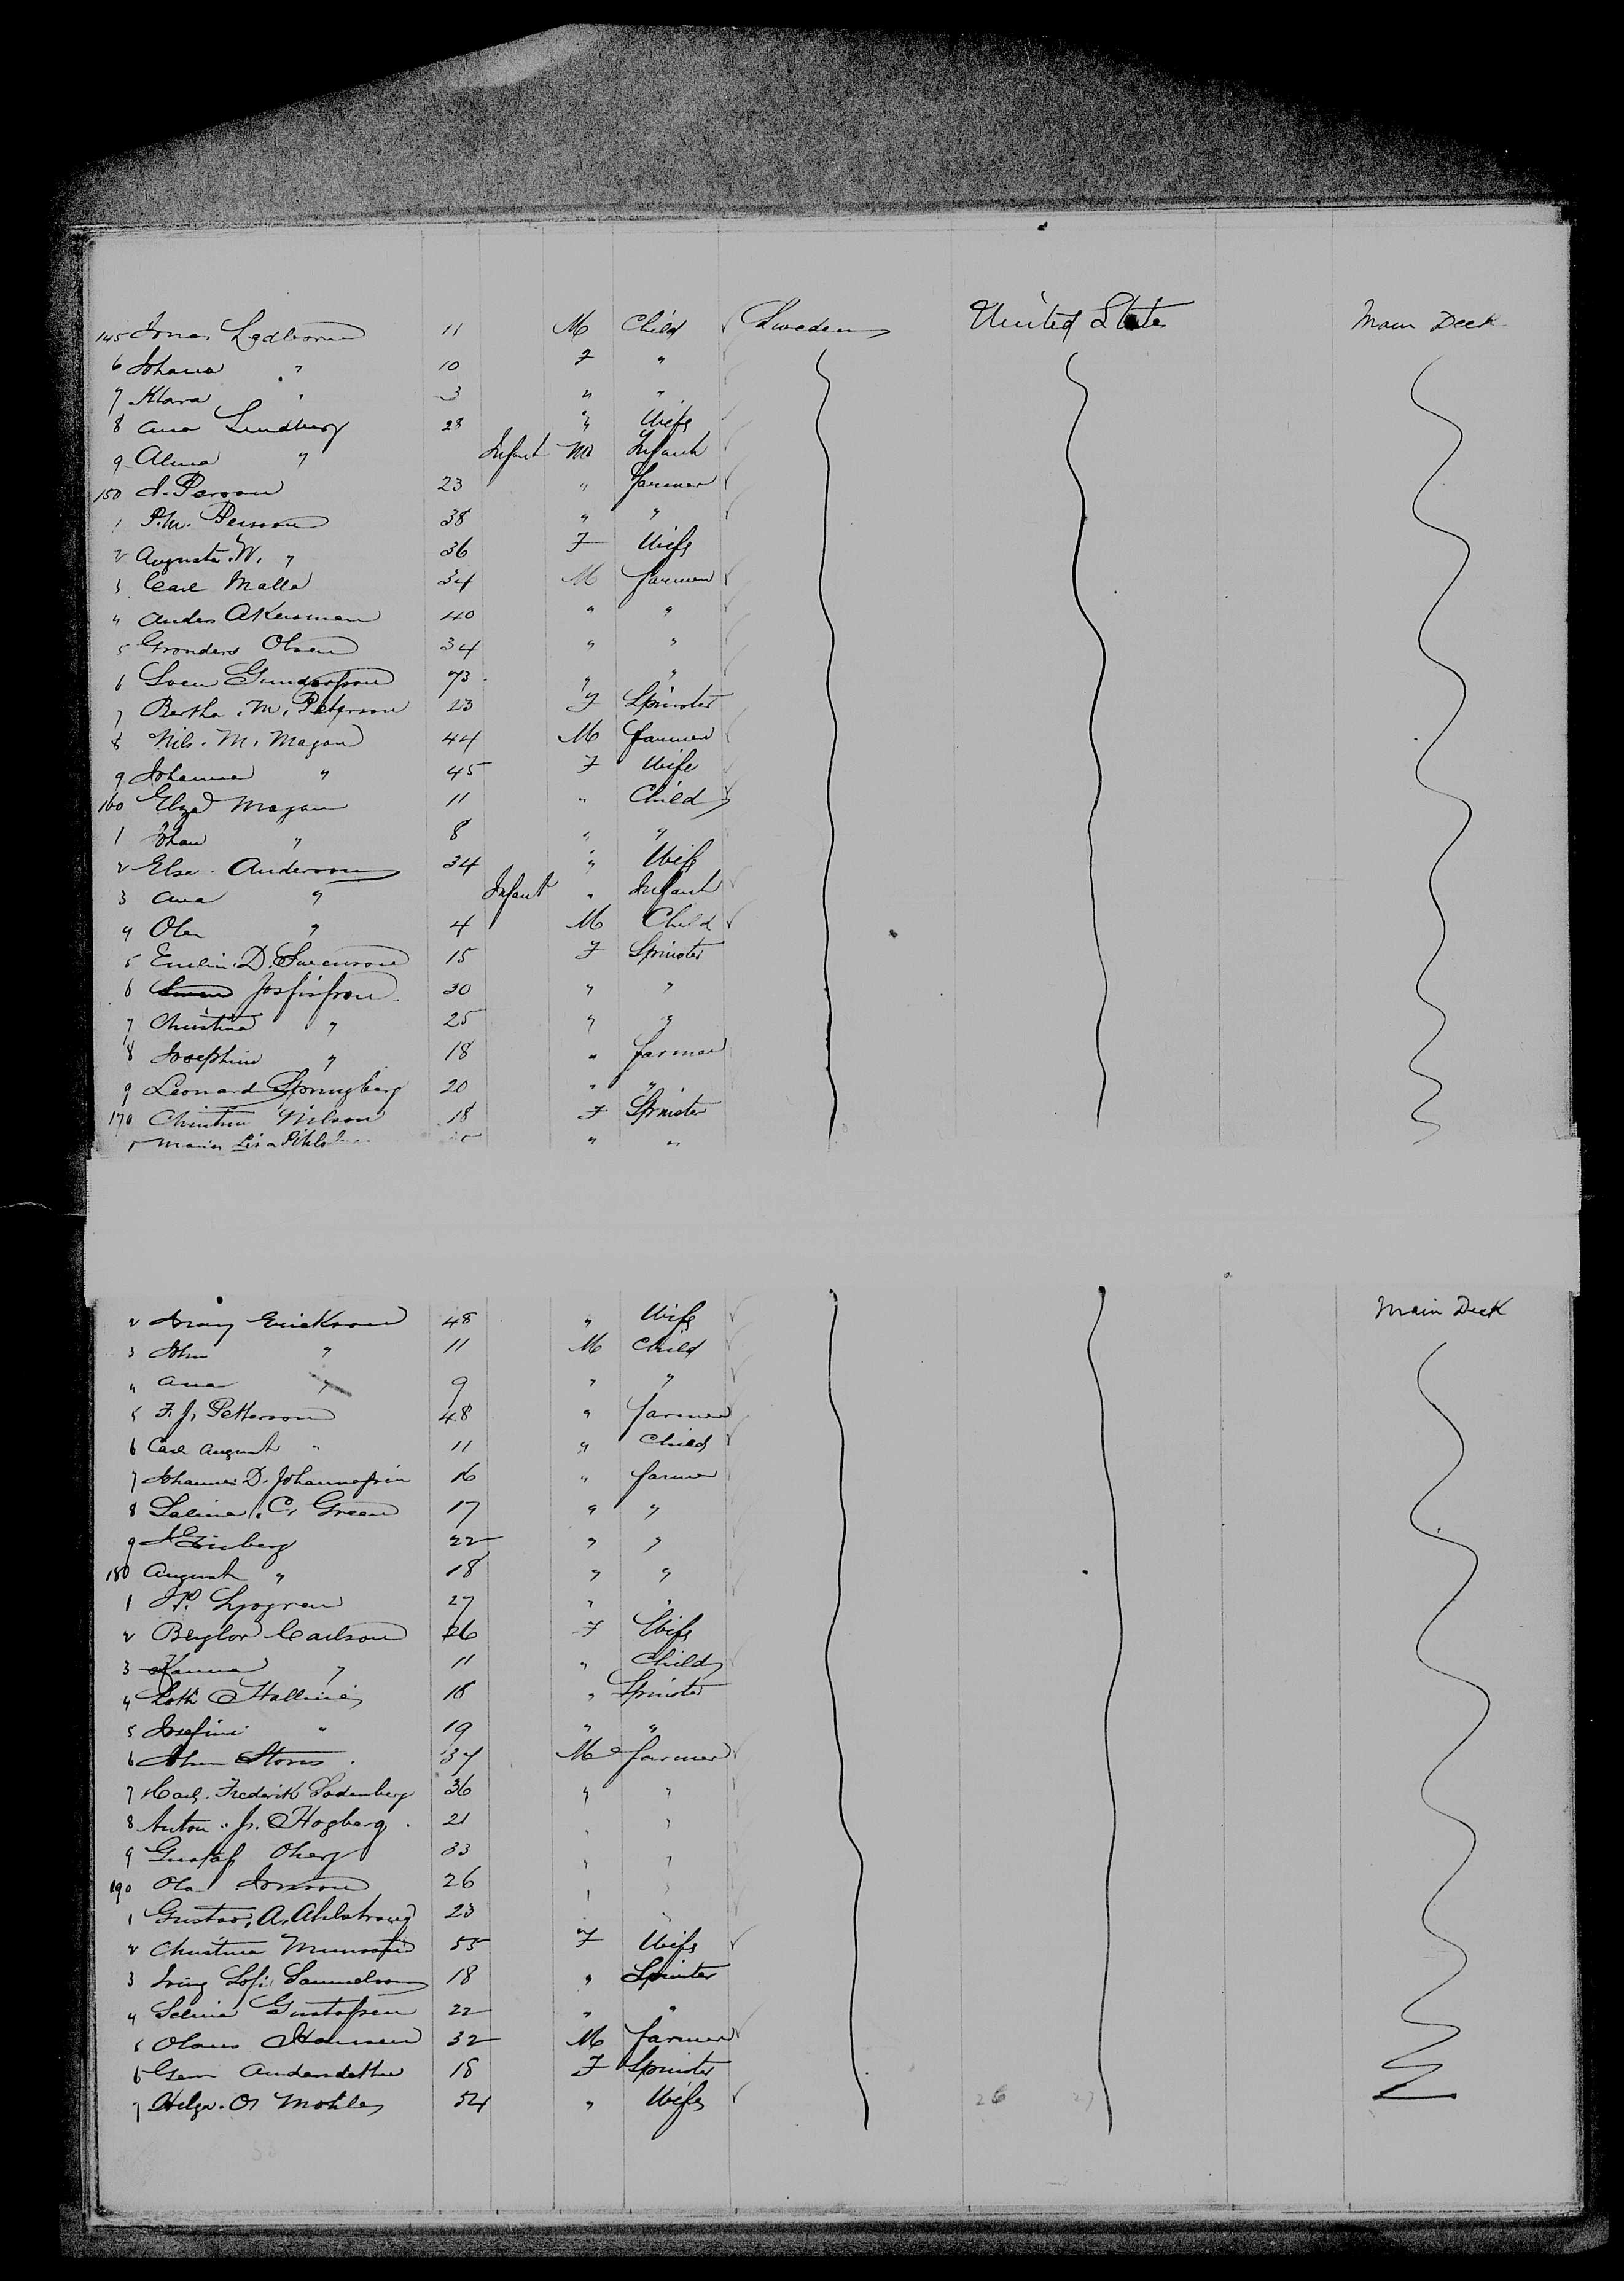 145 Jonas Ledborn 11 M Child Sweden United States Main Deck
6 Johana " 10 F "
7 Klara " 3 " "
8 Ana Lindberg 28 " Wife
9 Alma " Infant M Infant
150 J. Person 23 " farmer
1 P.M. Person 38 " "
2 Augusta W. " 36 F Wife
3 Carl Malla 34 M farmer
4 Anders Akerman 40 " "
5 Gronders Olsen 34 " "
6 Sven Gunderson 73 " "
7 Bertha. M. Peterson 23 F Spinster
8 Nils. M. Magan 44 M farmer
9 Johanna " 45 F Wife
160 Elza Magan 11 " Child
1 Johan " 8 " "
2 Else. Anderson 34 " Wife
3 Ana " Infant " Infant
4 Olen " 4 M Child
5 Emelin. D. Swenson 15 F Spinster
6 30 " "
7 Christina " 25 " "
8 Josephine " 18 " farmer
9 Leonard Spongberg 20 " "
170 Christin Nilson 18 F Spinster
1 Maria Lisa " "
2 Erickson 48 " Wife Main Deck
3 John " 11 M Child
4 Ana " 9 " "
5 F. J. Petterson 48 " farmer
6 Carl August " 11 " Child
7 Johannes D. Johannesson 16 " farmer
8 Salina. C. Green 17 " "
9 22 " "
180 August " 18 " "
1 P. Sjogren 27 " "
2 Carlson 26 F Wife
3 Hanna " 11 " Child
4 Lotti 18 " Spinster
5 Josefine " 19 " "
6 John Storis 37 M farmer
7 Carl. Frederik Sodenberg 36 " "
8 Anton. J. Hogberg 21 " "
9 Gustaf Oberg 33 " "
190 Ola Jonson 26 " "
1 Gustav. A. Ahlstrong 23 " "
2 Christina 55 F Wife
3 Sofi Samuelson 18 " Spinster
4 Selma Gustafsen 22 " "
5 Olaus Hansen 32 M farmer
6 18 F Spinster
7 Helga. O. Mohles 54 " Wife 26 27